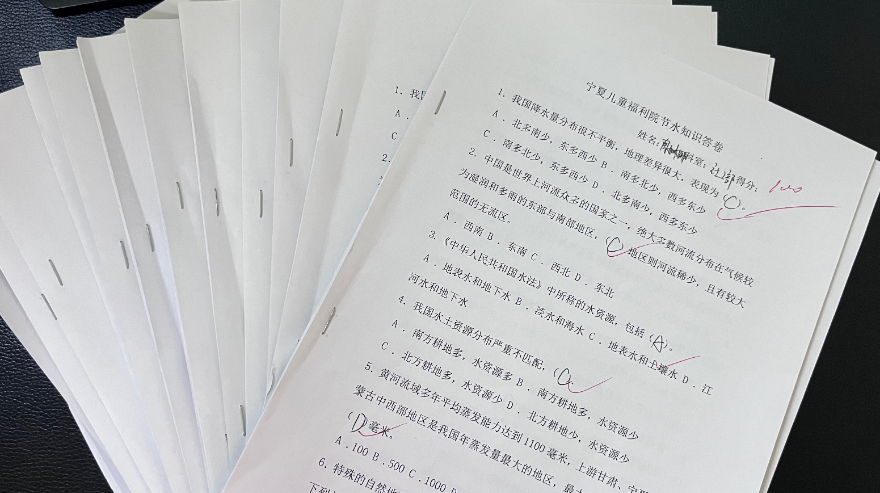 宁夏儿童福利院节水知识答卷
姓名: 科室: 得分: 100
1、我国降水量分布很不平衡，地理差异很大，表现为（C）。
A．北多南少，东多西少 B．南多北少，西多东少
C．南多北少，东多西少 D．北多南少，西多东少
2、中国是世界上河流众多的国家之一，绝大多数河流分布在气候较
为湿润和多雨的东部与南部地区，（C）地区则河流稀少，且有较大
范围的无流区。
A．西南 B．东南 C．西北 D．东北
3、《中华人民共和国水法》中所称的水资源，包括（A）。
A．地表水和地下水 B．泾水和海水 C．地表水和土壤水 D．江
河水和地下水
4、我国水土资源分布严重不匹配，（C）
A．南方耕地多，水资源多 B．南方耕地多，水资源少
C．北方耕地多，水资源少 D．北方耕地少，水资源少
5、黄河流域多年平均蒸发能力达到1100毫米，上游甘肃、宁夏
蒙古中西部地区是我国年蒸发量最大的地区，最
（D）毫米。
A．100 B．500 C．1000 D
6、特殊的自然地
下列
1、我国
A．
C．
2、